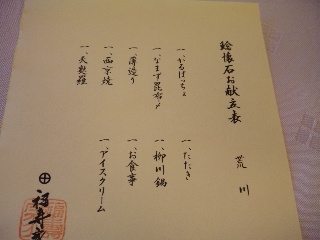 鯰懐石お献立表
荒川
一、かるぱっちょ
一、なまず昆布〆
一、薄造り
一、西京焼
一、天麩羅
一、たたき
一、柳川鍋
一、お食事
一、アイスクリーム